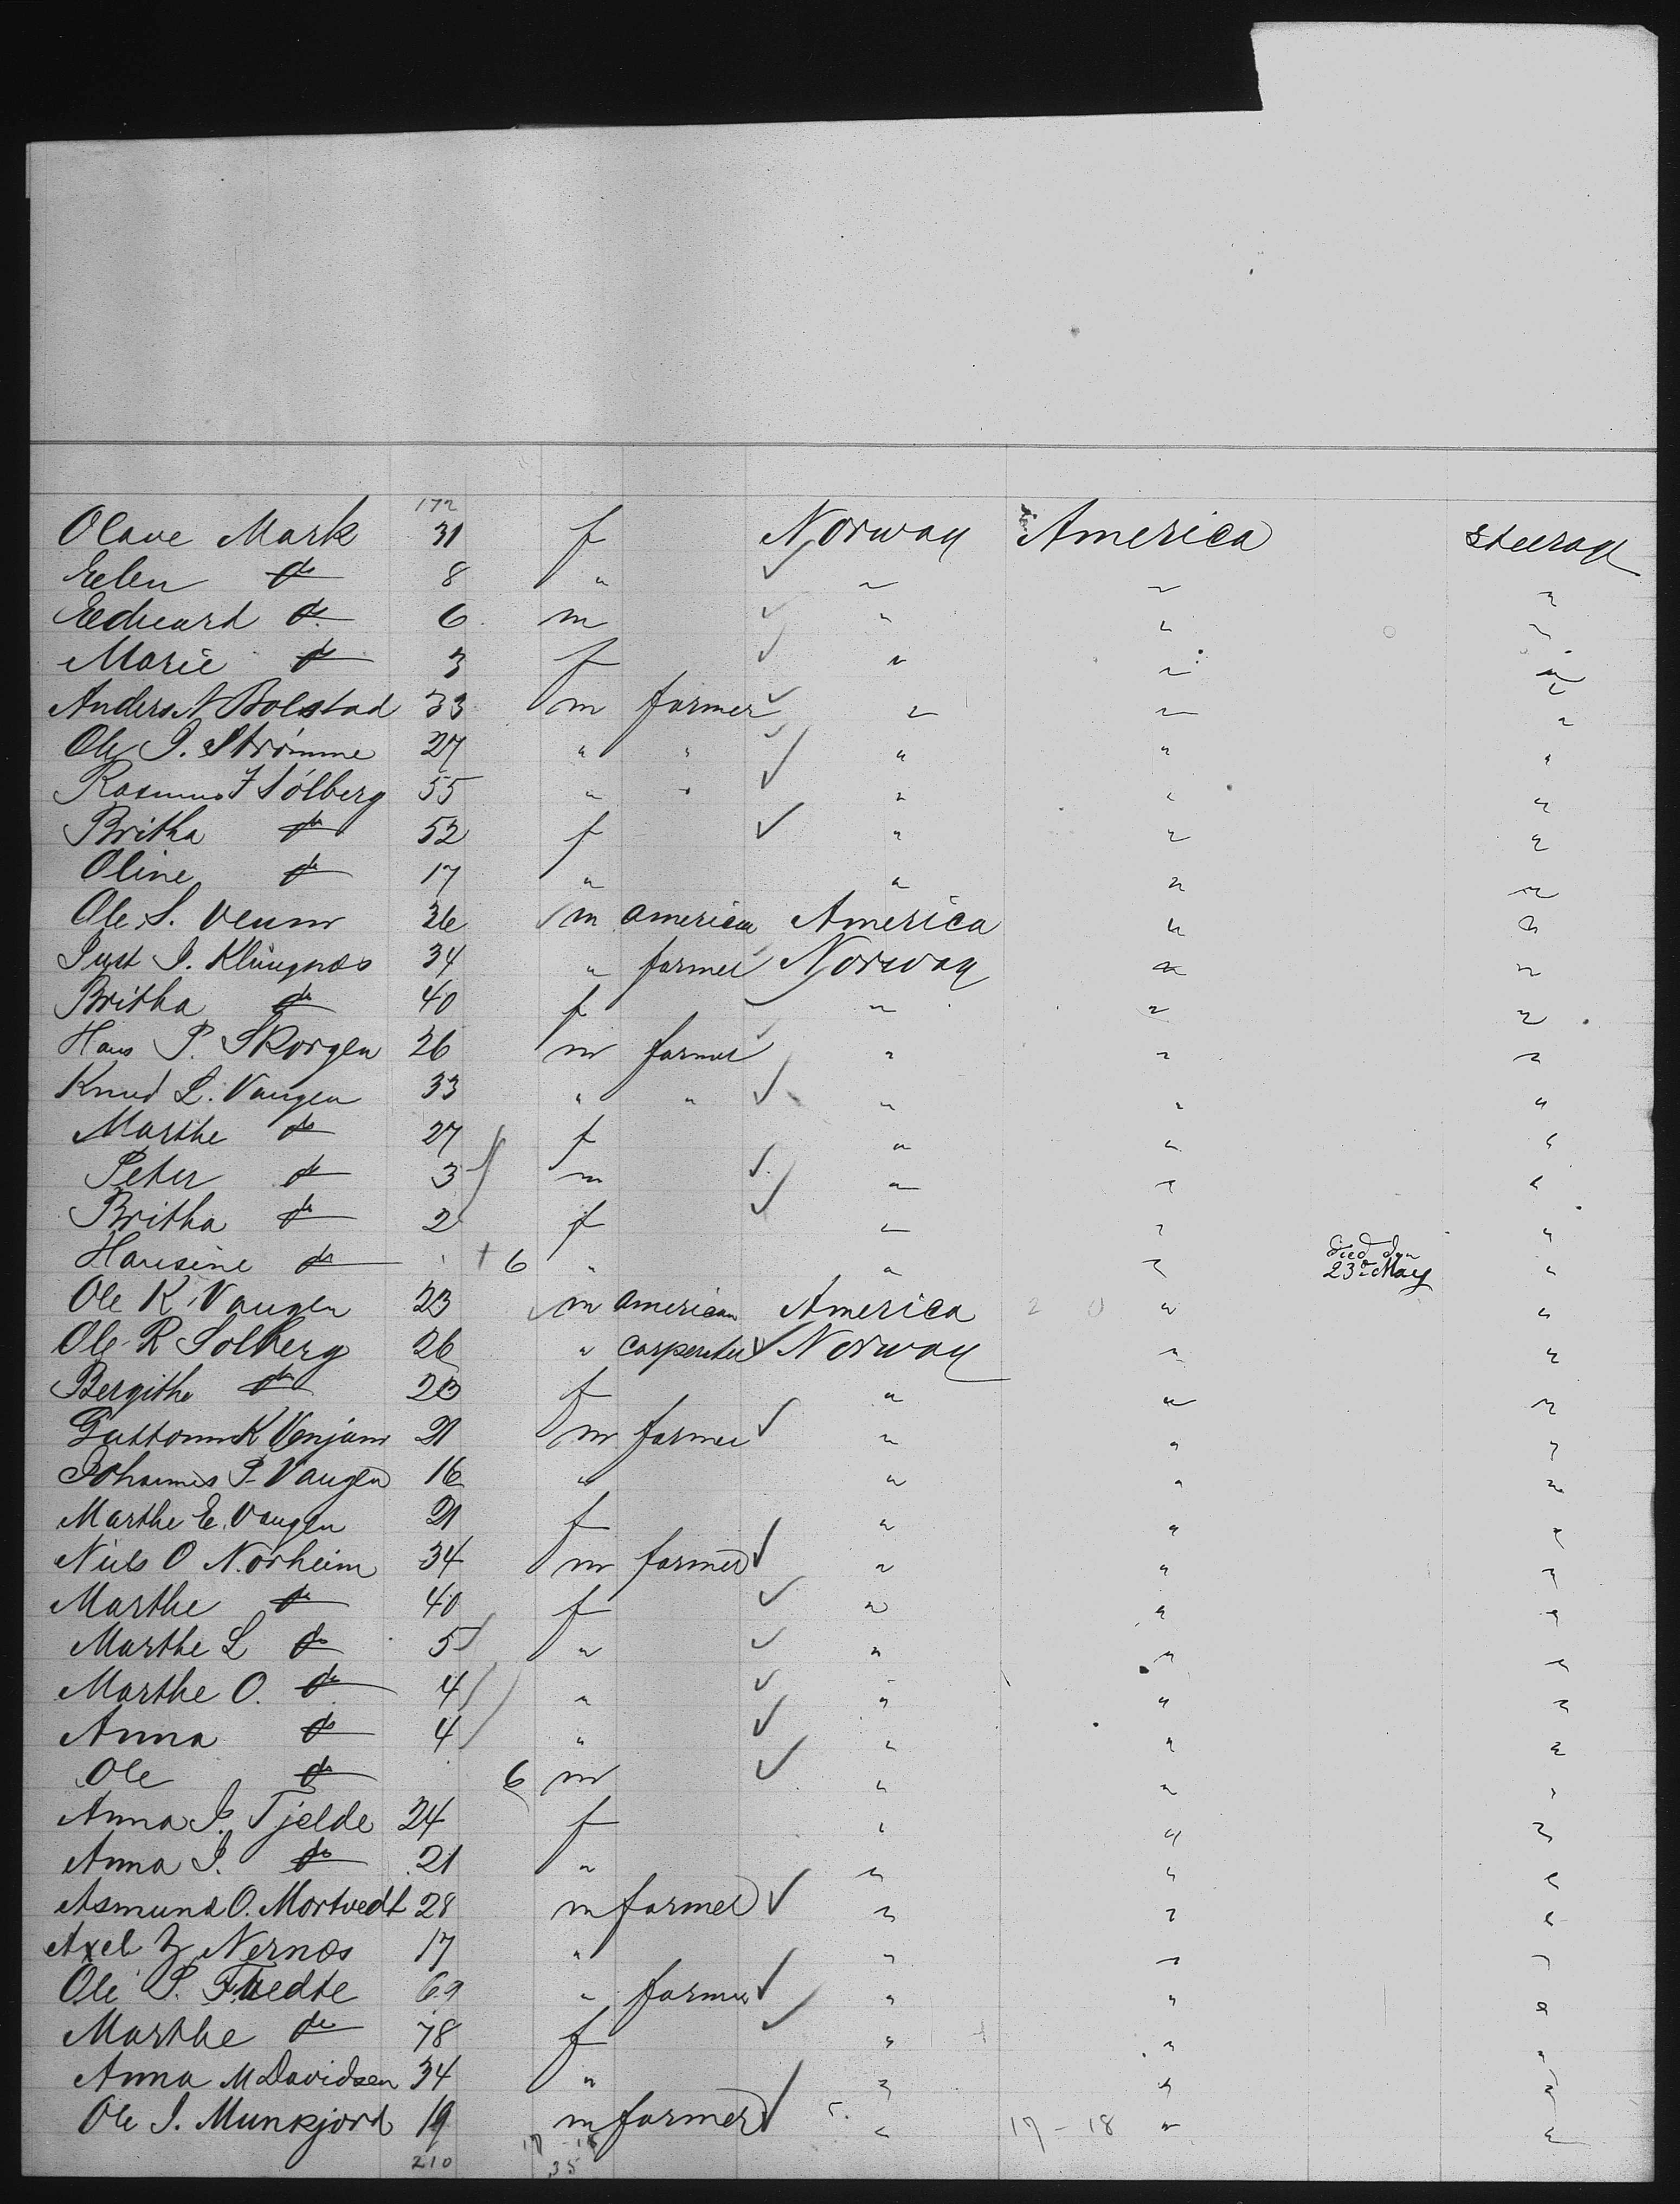 172
Olave Mark 31 f Norway America Steerage
Eelen do 8 " " " "
Eeduard do 6 m " " "
Marie do 3 f " " "
Anders N Bolstad 33 m farmer " " "
Ole J. Strömme 27 " " " " "
Rasmus J Sólberg 55 " " " " "
Britha do 52 f " " "
Oline do 17 " " " "
Ole S. Venm 26 m american America " "
Just J. Klüngnæs 34 " farmer Norway " "
Britha do 40 f " " "
Hans P. Skorgen 26 m farmer " " "
Knud L. Vangen 33 " " " " "
Marthe do 27 f " " "
Peter do 3 m " " "
Britha do 2 f " " "
Hansine do + 6 " " " died 23d May "
Ole K. Vangen 23 m american America 2 0 " "
Ole R Solberg 26 " carpenter Norway " "
Bergithe do 23 f " " "
Guttorm K Venjum 21 m farmer " " "
Johannes P. Vangen 16 " " " "
Marthe E. Vangen 21 f " " "
Niels O Norheim 34 m farmer " " "
Marthe do 40 f " " "
Marthe L do 5 " " " "
Marthe O. do 4 " " " "
Anna do 4 " " " "
Ole do 6 m " " "
Anna J. Tjelde 24 f " " "
Anna J. do 21 " " " "
Asmund O. Mortvedt 28 m farmer " " "
Axel Nernæs 17 " " " "
Ole P. Tvedte 69 " farmer " " "
Marthe do 78 f " " "
Anna M Davidsen 34 " " " "
Ole J. Munkjord 19 m farmer " 17 - 18 " "
210 17 18
35